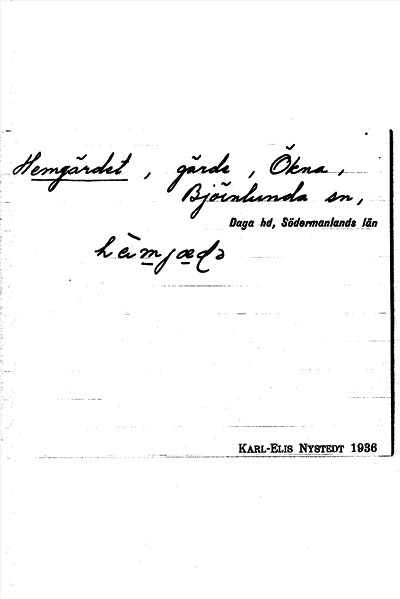 Hemgärdet, gärde, Ökna,
Björnlunda sn,
Daga hd, Södermanlands län
hèmjædə
KARL-ELIS NYSTEDT 1936